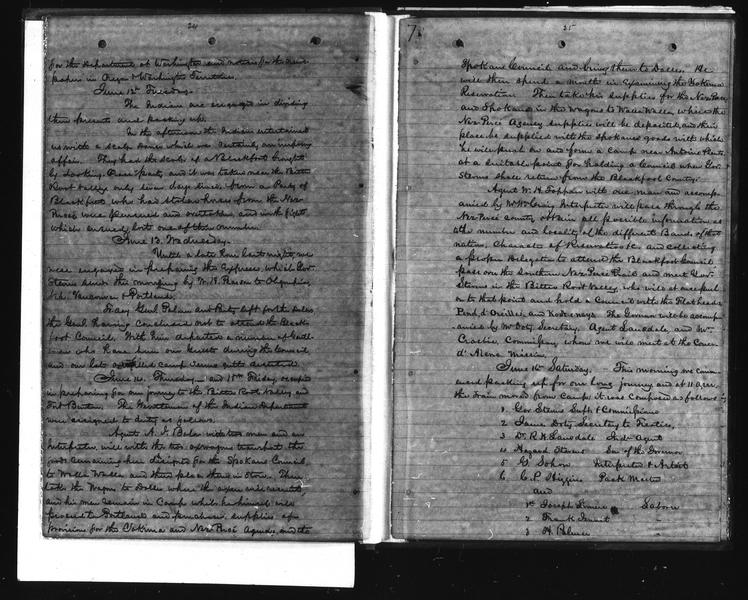 24
for the Department at Washington and notices for the news
papers in Oregon & Washington Territories.
June 12th Tuesday.
The Indians are engaged in dividing
their presents and packing up.
In the afternoon the Indians entertained
us with a scalp dance which was certainly an
affair. They had the scalp of a Blackfoot brought
by Looking Glass' party, and it was taken near the Bitter
Root Valley only days since, from a Party of
Blackfeet who had stolen horses from the Nez
Perces were pursued and overtaken, and in the fight
which ensued lost one of their number.
June 13. Wednesday.
Until a late hour last night, we
were engaged in preparing the Expresses, which Gov.
Stevens sends this morning by W. H. Pearson to Olympia,
Vancouver & Portland.
Today Genl Palmer and Party left for the Dalles
the Genl having concluded not to attend the Black-
foot Council. With him departed a number of Gentle-
men who have been our guests during the Council
and our late camp seems quite deserted.
June 14. Thursday and 15th Friday, occupied
in preparing for our journey to the Bitter Root Valley and
Fort Benton. The Gentlemen of the Indian Department
were assigned to duty as follows.
Agent A. J. Bolon with two men and an
Interpreter will with the two ox wagons transport the
goods remaining here designed for the Spokane Council,
to Walla Walla and there place them in Store. Then
take the Wagons to Dalles where the
and his men remain in Camp while he himself will
proceed to Portland and purchase supplies of
provisions for the Yakima and Nez Percé Agencies, and the
7.
25
Spokane Council and bring them to Dalles. He
will then spend a month in examining the Yakima
Reservation. Then take his supplies for the Nez Perces
and Spokanes in the Wagons to Walla Walla, where the
Nez Percé Agency supplies will be deposited, and their
place be supplied with the Spokane goods with which
he will push on and form a Camp near Antoine Plants
at a suitable point for holding a Council when Gov.
Stevens shall return from the Blackfoot Country.
Agent W. H. Tappan with one man and accompanied
by Wm Craig Interpreter will pass through the
Nez Percé country obtain all possible information as
to the number and locality of the different Bands of that
nation, Character of Reservation &c and collecting
a proper delegation to attend the Blackfoot Council
pass over the Southern Nez Percé Trail and meet Gov.
Stevens in the Bitter Root Valley, who will at once push
on to that point and hold a Council with the Flatheads
Pend d'Oreilles, and Kootenays. The Governor will be accompanied
by Mr Doty, Secretary. Agent Lansdale, and Mr.
Crosbie, Commissary whom we will meet at the Coeur
d'Alene Mission.
June 16th Saturday. This morning we commenced
packing up for our long journey and at 11 a.m.
the train moved from Camp, it was composed as follows:
1. Gov Stevens Supt & Commissioner
2 James Doty Secretary to Treaties,
3 Dr. R H Lansdale Indn Agent
4 Hazard Stevens Son of the Governor
5 G. Sohon Interpreter & Artist
6 C. P. Higgins Pack Master
and
1st Joseph Laborer
2 Frank Genett "
3 H. Palmer "